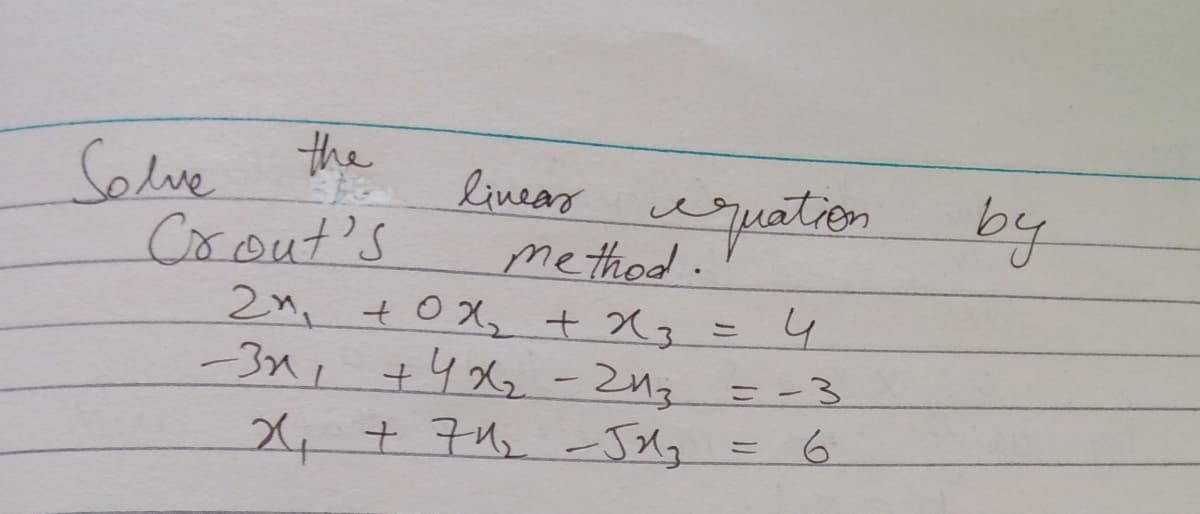 Solve the linear equation by
Crout's method.
2x₁ + 0x₂ + x₃ = 4
-3x₁ + 4x₂ - 2x₃ = -3
x₁ + 7x₂ - 5x₃ = 6